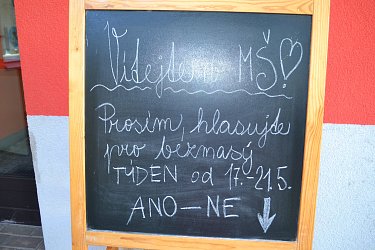 Vítejte v MŠ!
Prosím, hlasujte
pro bezmasý
TÝDEN od 17.-21.5.
ANO-NE